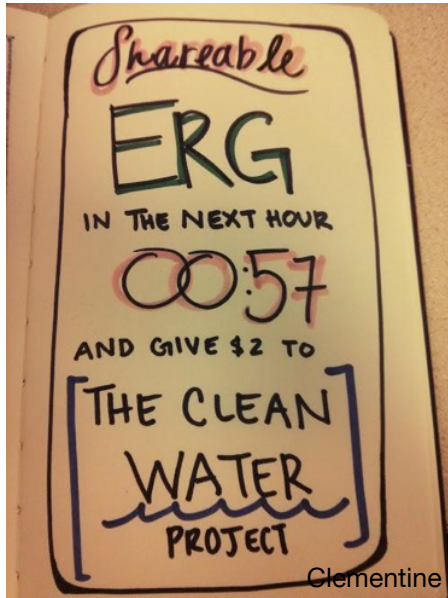 Shareable
ERG
IN THE NEXT HOUR
00:57
AND GIVE $2 TO
THE CLEAN
WATER
PROJECT
Clementine